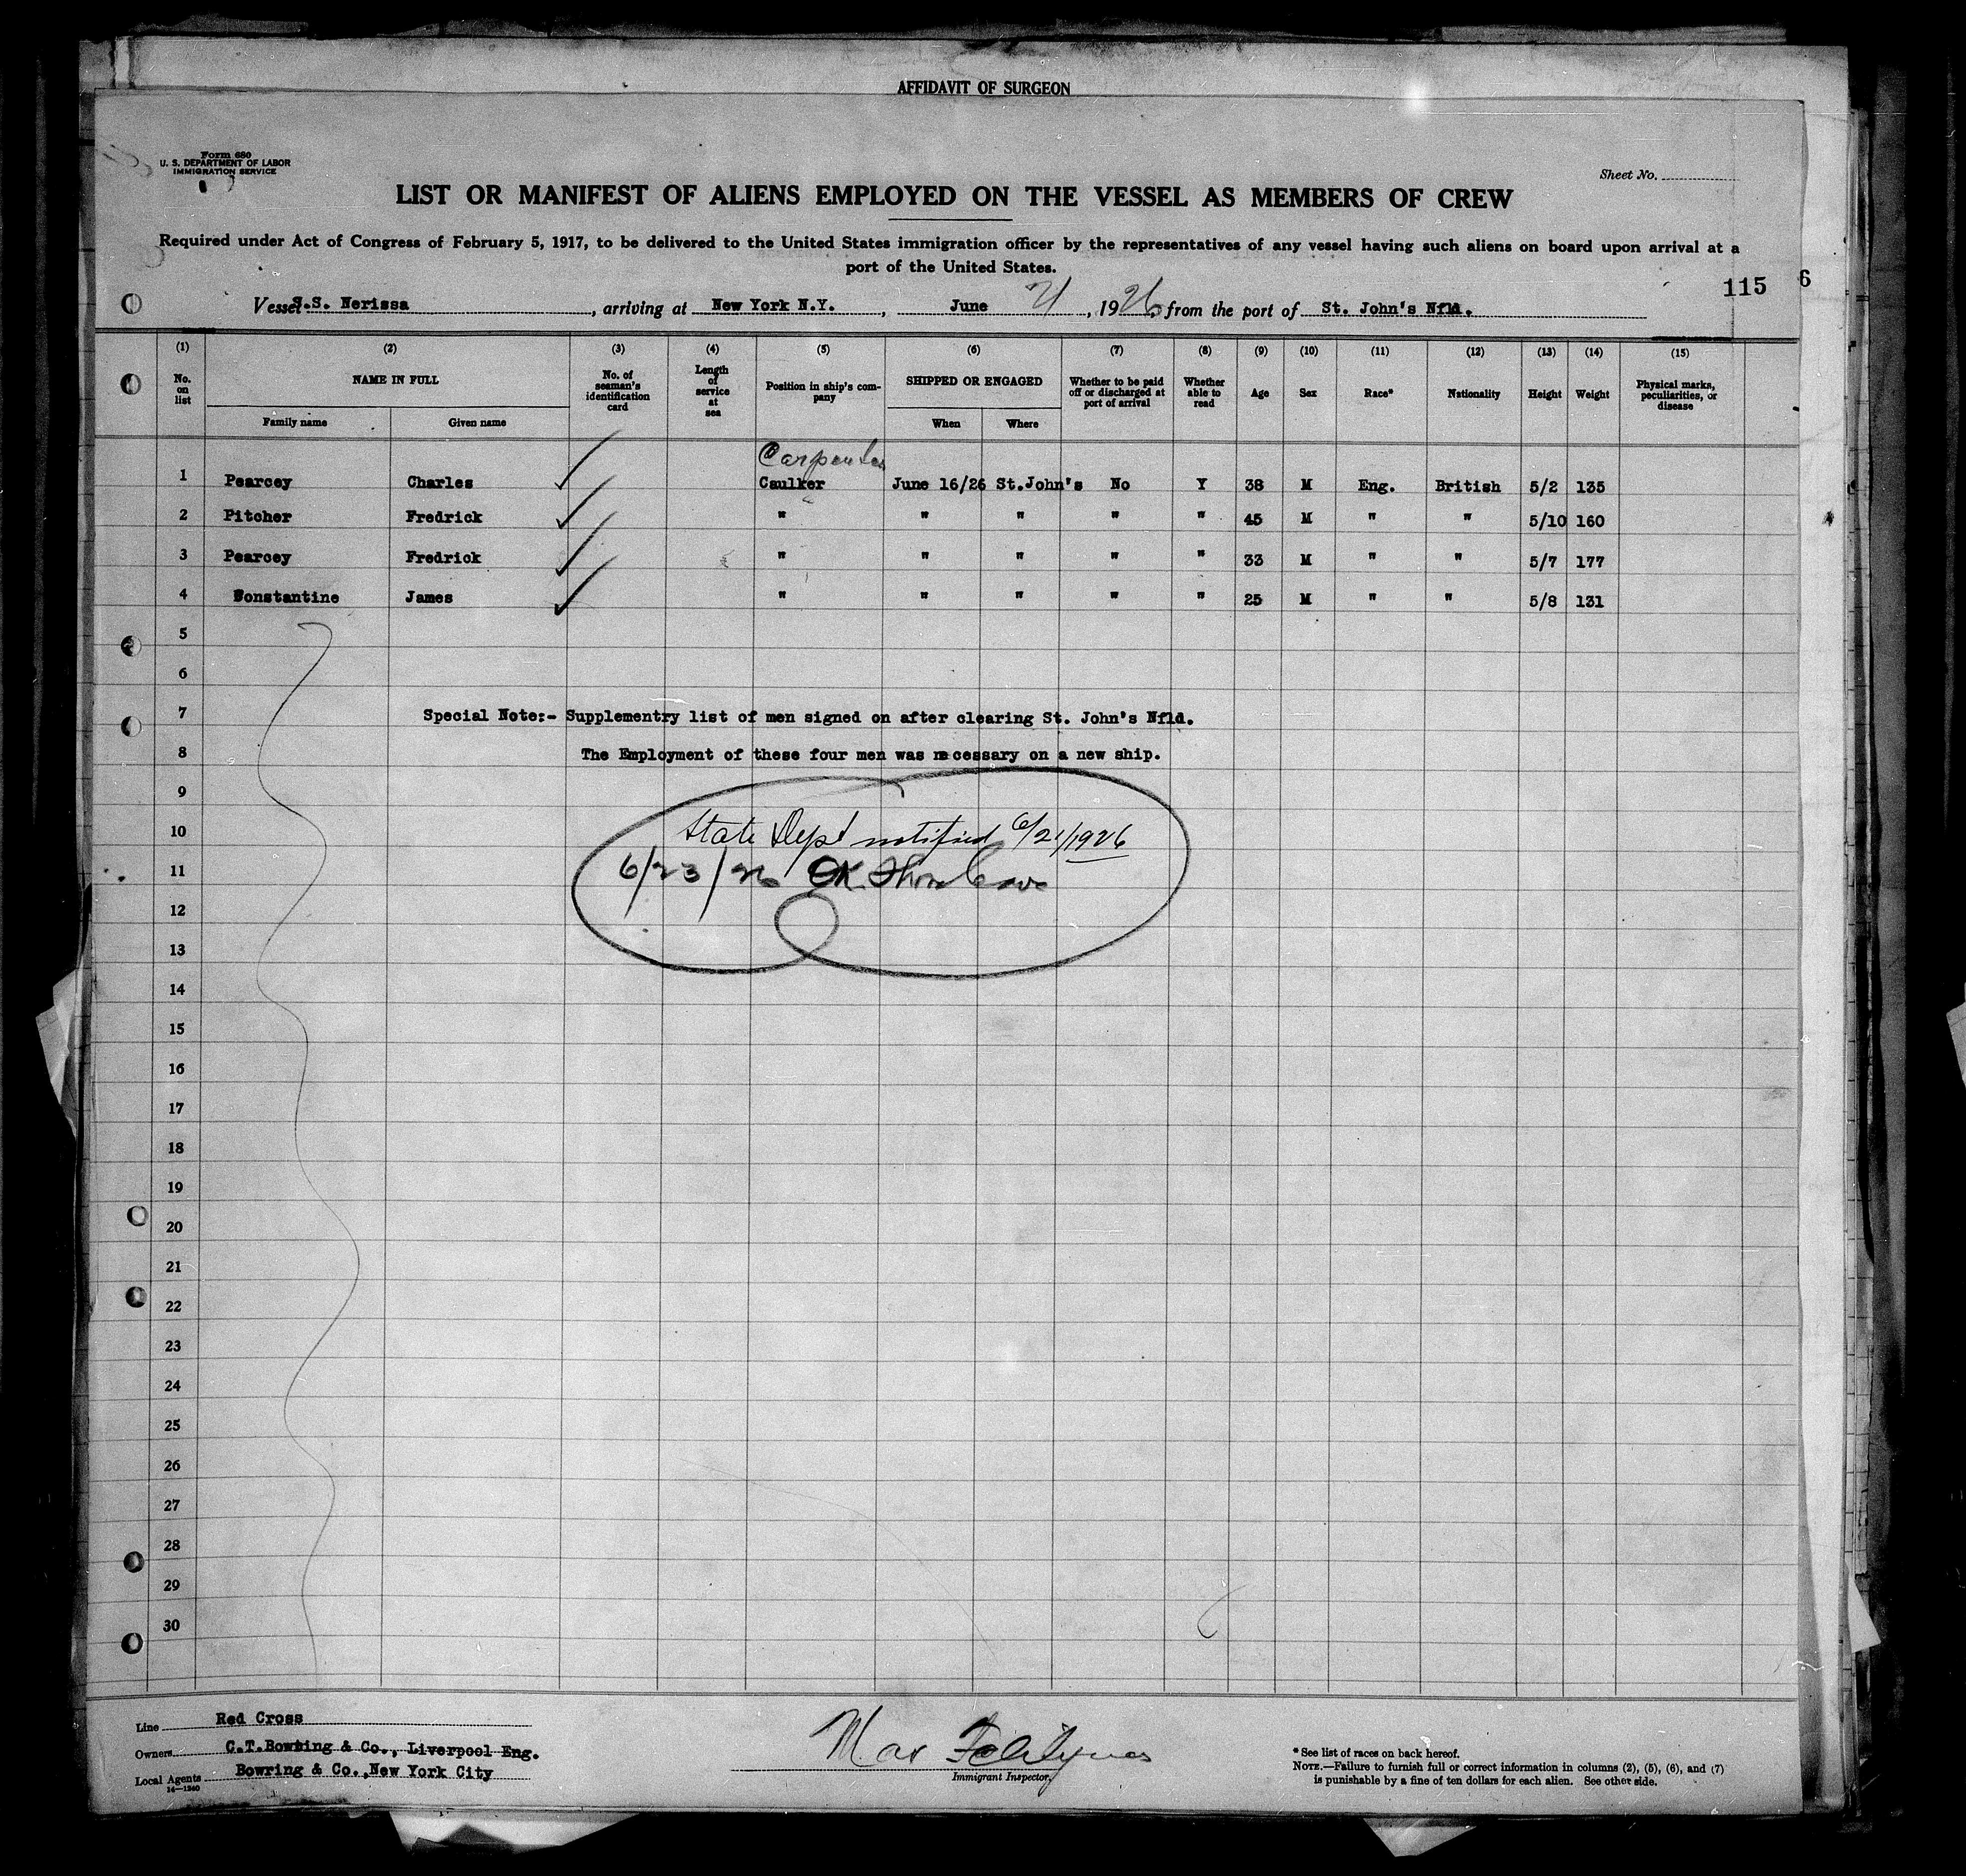 AFFIDAVIT OF SURGEON
Form 680
U. S. DEPARTMENT OF LABOR
IMMIGRATION SERVICE
Sheet No.
LIST OR MANIFEST OF ALIENS EMPLOYED ON THE VESSEL AS MEMBERS OF CREW
Required under Act of Congress of February 5, 1917, to be delivered to the United States immigration officer by the representatives of any vessel having such aliens on board upon arrival at a
port of the United States.
115 6
Vessel S.S. Nerissa, arriving at New York N.Y., June 21, 1926, from the port of St. John's Nfld.
(1) (2) (3) (4) (5) (6) (7) (8) (9) (10) (11) (12) (13) (14) (15)
No. on list NAME IN FULL No. of seaman's identification card Length of service at sea Position in ship's company SHIPPED OR ENGAGED Whether to be paid off or discharged at port of arrival Whether able to read Age Sex Race* Nationality Height Weight Physical marks, peculiarities, or disease
Family name Given name When Where
Carpenter
1 Pearcey Charles Caulker June 16/26 St.John's No Y 38 M Eng. British 5/2 135
2 Pitcher Fredrick " " " " " 45 M " " 5/10 160
3 Pearcey Fredrick " " " " " 33 M " " 5/7 177
4 Sonstantine James " " " " " 25 M " " 5/8 131
5
6
7 Special Note:- Supplementry list of men signed on after clearing St. John's Nfld.
8 The Employment of these four men was necessary on a new ship.
9
10 State Dept notified 6/21/1926
11 6/23/26 OK.
12
13
14
15
16
17
18
19
20
21
22
23
24
25
26
27
28
29
30
Line Red Cross
Owners C.T.Bowring & Co., Liverpool Eng.
Local Agents Bowring & Co., New York City
14—1240
Max
Immigrant Inspector.
* See list of races on back hereof.
NOTE.—Failure to furnish full or correct information in columns (2), (5), (6), and (7)
is punishable by a fine of ten dollars for each alien. See other side.